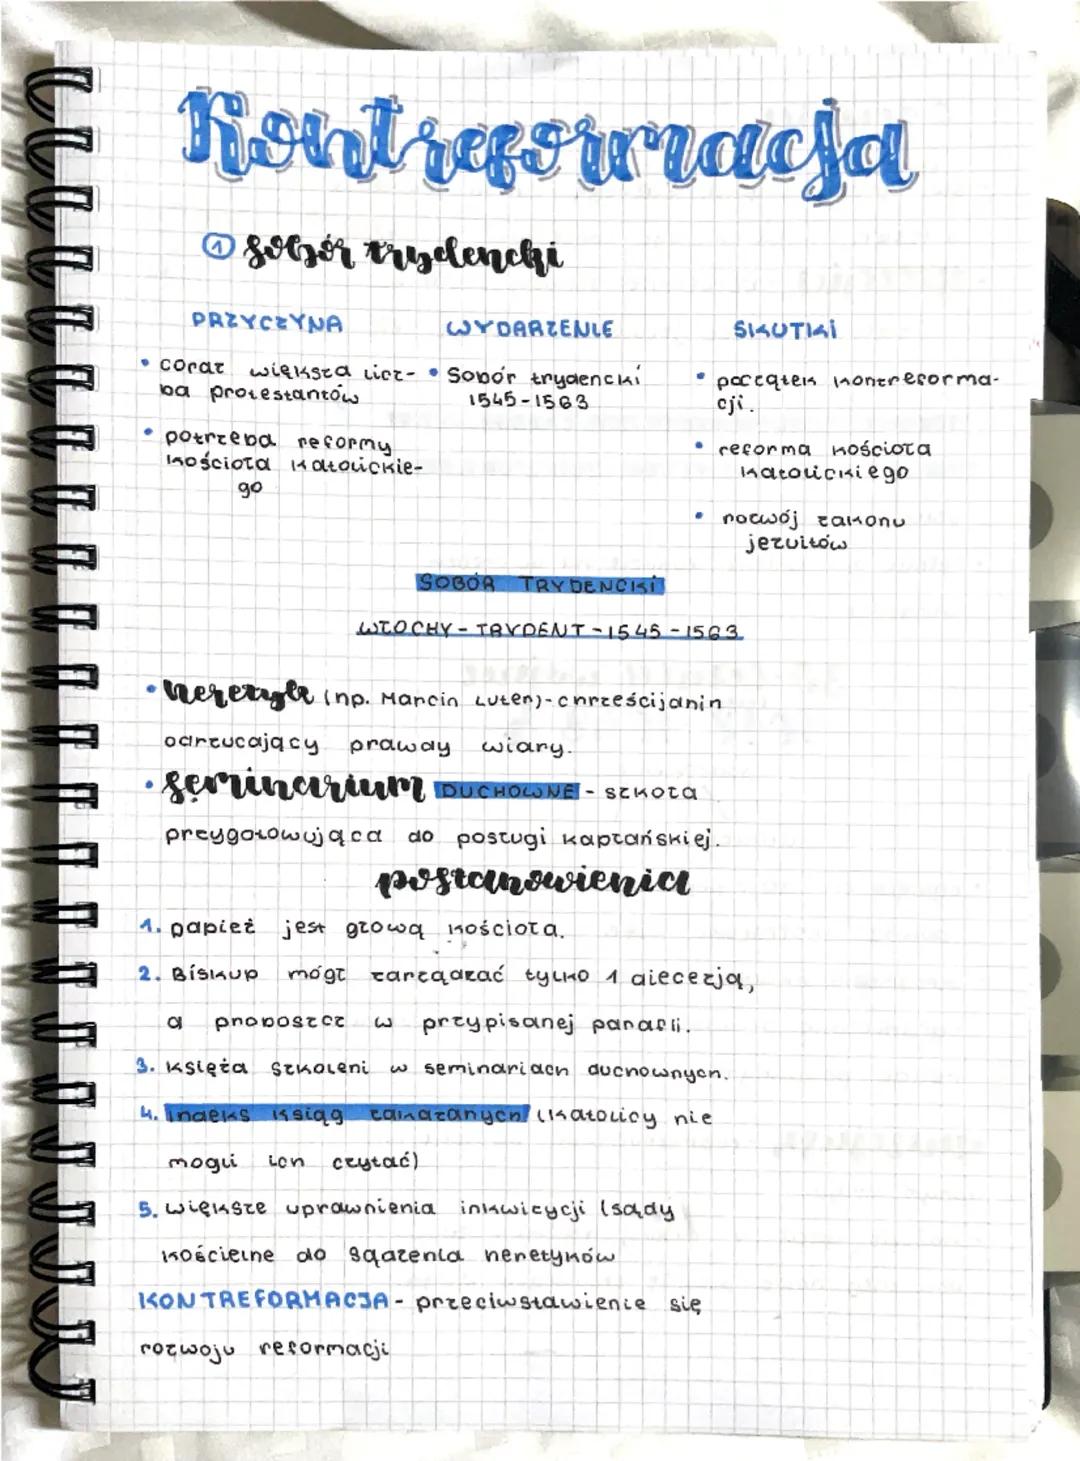 Kontreformacja
1 sobór trydencki
PRZYCZYNA
• coraz większa licz-
ba protestantów
• potrzeba reformy
kościoła katolickie-
go
WYDARZENIE
• Sobór trydencki
1545-1563
SKUTKI
• początek kontreforma-
cji.
• reforma kościoła
katolickiego
• rozwój zakonu
jezuitów
SOBÓR TRYDENCKI
WŁOCHY - TRYDENT - 1545 - 1563
• heretyk (np. Marcin Luter) - chrześcijanin
odrzucający prawdy wiary.
• seminarium DUCHOWNE - szkoła
przygotowująca do posługi kapłańskiej.
postanowienia
1. papież jest głową kościoła.
2. Biskup mógł zarządzać tylko 1 diecezją,
a proboszcz w przypisanej parafii.
3. księża szkoleni w seminariach duchownych.
4. indeks ksiąg zakazanych (katolicy nie
mogli ich czytać)
5. większe uprawnienia inkwizycji (sądy
kościelne do sądzenia heretyków
KONTREFORMACJA - przeciwstawienie się
rozwoju reformacji